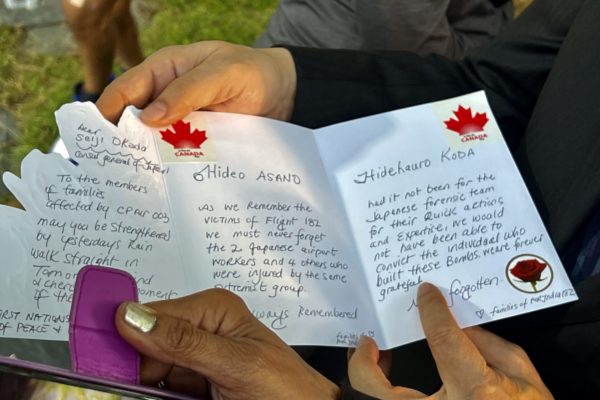 Dear
Seiji Okada
Consul general of Japan
To the members
of families
affected by CPAir 003
may you be strengthened
by yesterdays Rain
walk straight in
Tom
nd
& cher
ment
of th
FIRST NATIONS
OF PEACE &
CANADA
Hideo ASANO
As we Remember the
victims of Flight 182
we must never forget
the 2 Japanese airport
workers and 4 others who
were injured by the same
extremist group.
lways Remembered
families of
CANADA
Hidehauro KODA
had it not been for the
Japanese forensic team
for their Quick actions
and Expertise, we would
not have been able to
convict the individual who
built these Bombs. We are forever
grateful
forgotten.
families of Air India 182